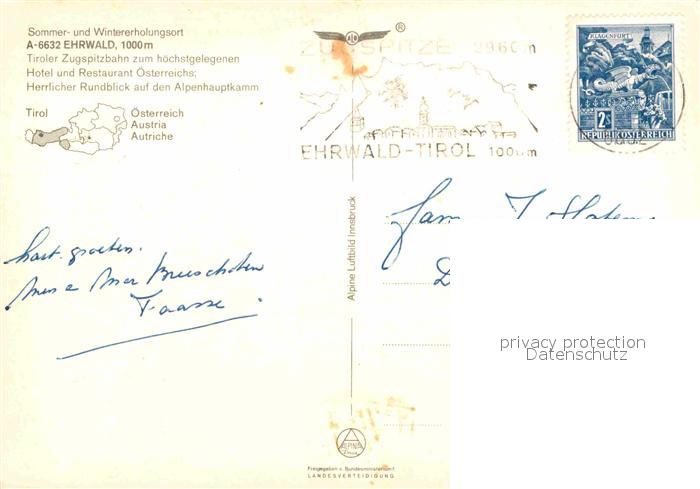 Sommer- und Wintererholungsort
A-6632 EHRWALD, 1000 m
Tiroler Zugspitzbahn zum höchstgelegenen
Hotel und Restaurant Österreichs;
Herrlicher Rundblick auf den Alpenhauptkamm
Tirol
Österreich
Austria
Autriche
®
ZUGSPITZE 2960m
EHRWALD-TIROL 1000m
KLAGENFURT
2S
REPUBLIK ÖSTERREICH
hart. groeten.
Faasse
Fam
Alpine Luftbild Innsbruck
privacy protection
Datenschutz
ALPINA
Druck
Freigegeben v. Bundesministerium f.
LANDESVERTEIDIGUNG